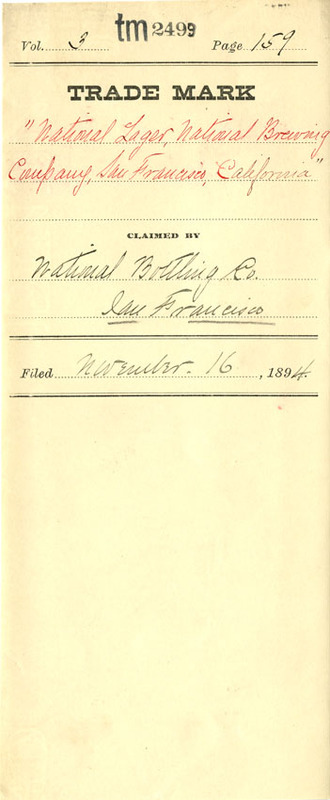 tm 2499
Vol. 3 Page 159
TRADE MARK
"National Lager, National Brewing
Company, San Francisco, California"
CLAIMED BY
National Bottling Co.
San Francisco
Filed November. 16, 1894.